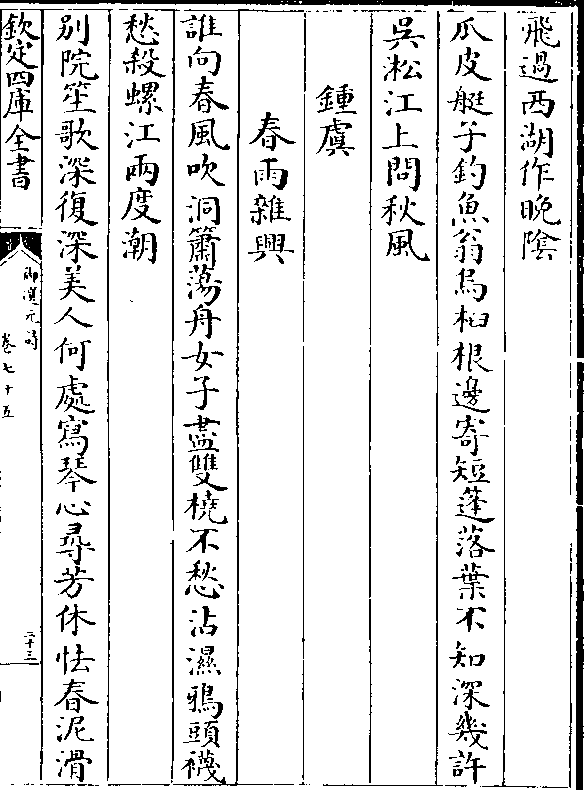 飛過西湖作晚陰
瓜皮艇子釣魚翁烏桕根邊寄短蓬落葉不知深幾許
吳淞江上問秋風
鍾虞
春雨雜興
誰向春風吹洞簫蕩舟女子盡雙橈不愁沾濕鴉頭襪
愁殺螺江兩度潮
別院笙歌深復深美人何處寫琴心尋芳休怯春泥滑
欽定四庫全書
御選元詩
卷七十五
二十三